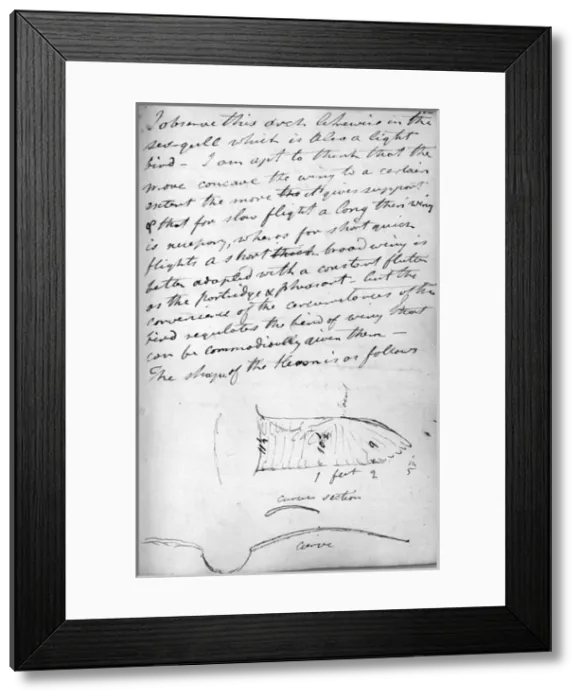 I observe this arch likewise in the
sea-gull which is also a light
bird - I am apt to think that the
more concave the wing to a certain
extent the more it gives support
& that for slow flight a long thin wing
is necessary, whereas for short quick
flights a short thick broad wing is
better adapted with a constant flutter
as the partridge & pheasant - but the
convenience of the circumstances of the
bird regulates the kind of wing that
can be commodiously given them -
The shape of the Heron is as follows
11½
10½
9
1 feet 2
5 in
section
curve